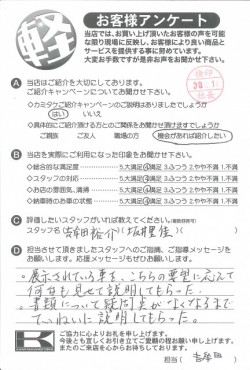 軽
お客様アンケート
当店では、お買い上げ頂いたお客様の声を可能
な限り現場に反映し、お客様により良い商品と
サービスを提供する事に努めています。
大変お手数ですが是非お声をお聞かせ下さい。
A 当店はご紹介を大切にしております。
ご紹介キャンペーンについてお聞かせ下さい。
◇カミタケご紹介キャンペーンのご説明はありましたでしょうか
はい いいえ
◇具体的にご紹介頂ける方とのご関係をお聞かせ頂けますでしょうか
ご親族 ご友人 職場の方 機会があれば紹介したい
B 当店を実際にご利用になった印象をお聞かせ下さい。
◇総合的な満足度 5.大満足 4.満足 3.ふつう 2.やや不満 1.不満
◇スタッフの対応 5.大満足 4.満足 3.ふつう 2.やや不満 1.不満
◇お店の雰囲気、清掃 5.大満足 4.満足 3.ふつう 2.やや不満 1.不満
◇納車時のお車の状態 5.大満足 4.満足 3.ふつう 2.やや不満 1.不満
C 評価したいスタッフがいれば教えてください。
スタッフ名
D 担当させて頂きましたスタッフへのご指摘、ご指導、応援メッセージを
お願いします。どんなメッセージでも構いません。
。展示されている車を、こちらの要望に応えて
何台も見せて説明してもらった。
。書類について疑問点がなくなるまで
ていねいに説明してもらった。
K
ご協力に心よりお礼を申し上げます。
今後とも宜しくお引き立てご愛顧の程お願い申し上げます。
またのご来店を心からお待ちしております。
担当（ ）